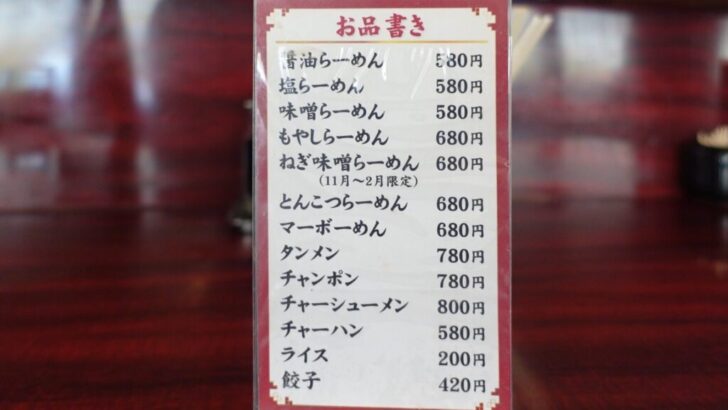 お品書き
醤油らーめん 580円
塩らーめん 580円
味噌らーめん 580円
もやしらーめん 680円
ねぎ味噌らーめん 680円
(11月〜2月限定)
とんこつらーめん 680円
マーボーめん 680円
タンメン 780円
チャンポン 780円
チャーシューメン 800円
チャーハン 580円
ライス 200円
餃子 420円